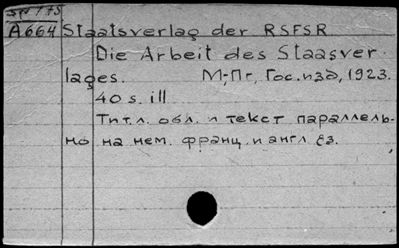 A664 Staatsverlag der RSFSR
Die Arbeit des Staasver
lages. М-Пг, Гос.изд, 1923.
40 s. ill
Тит.л. обл. и текст параллель-
но на нем. франц. и англ. яз.